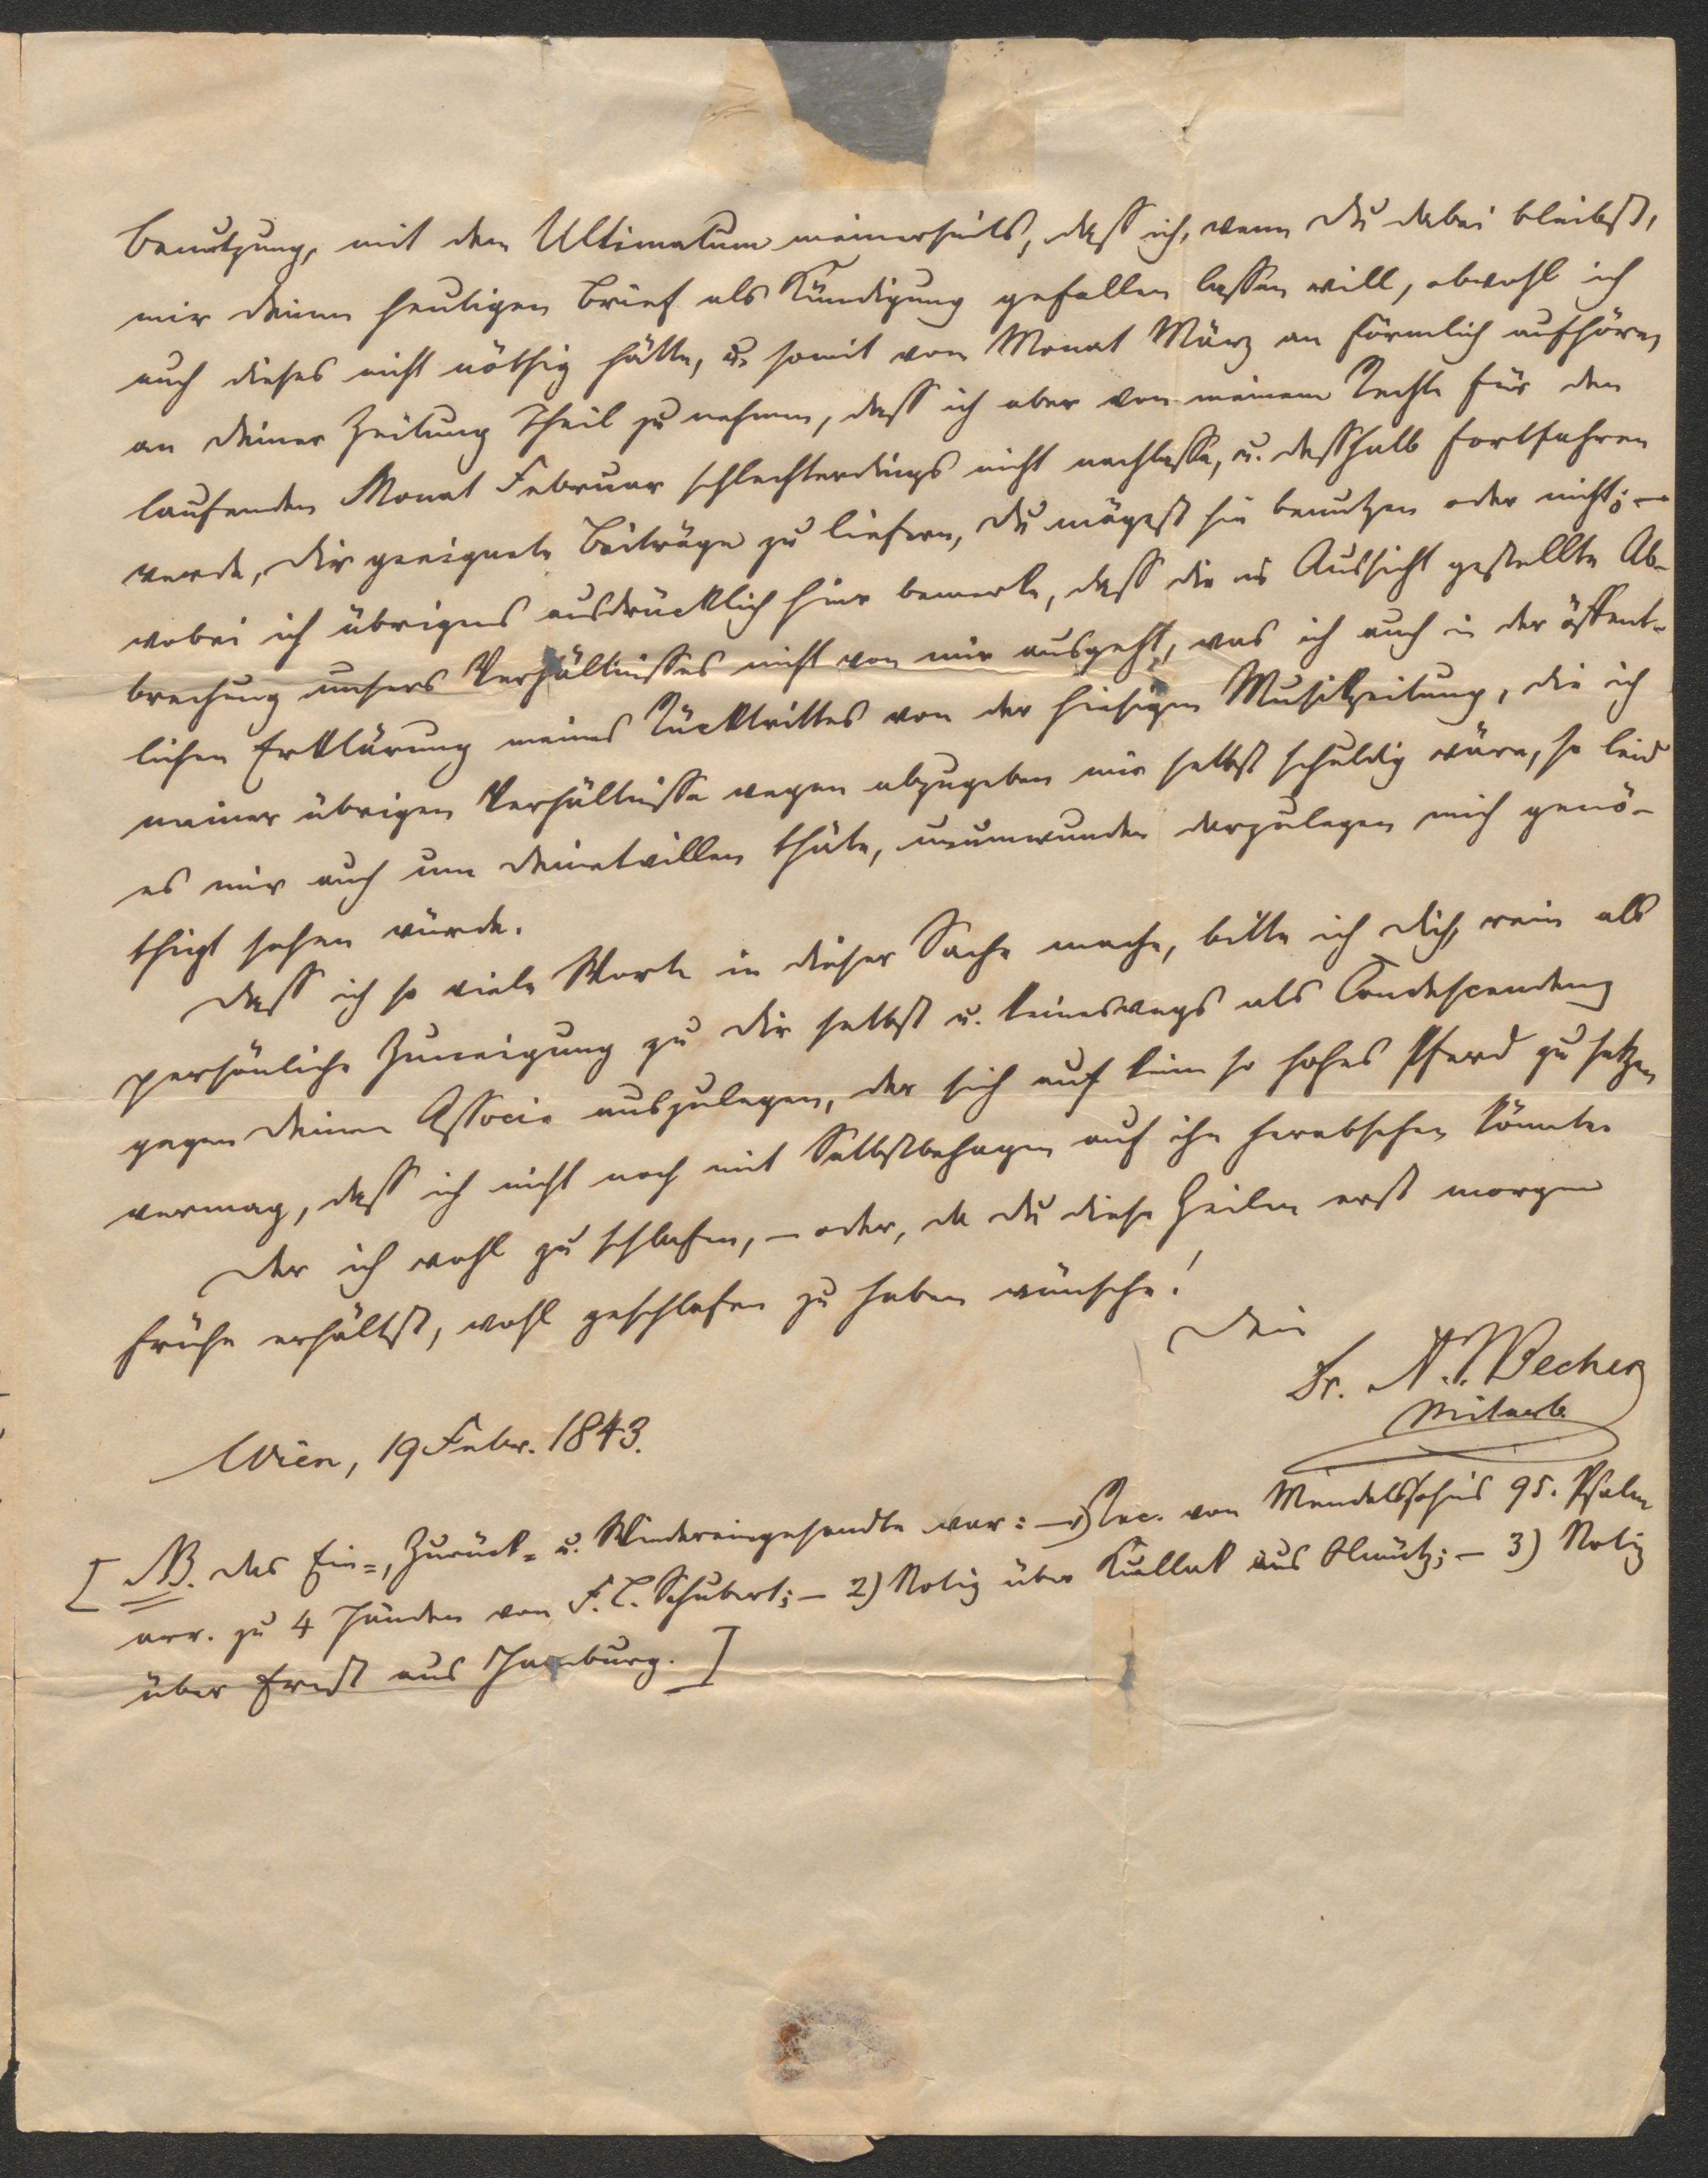 Benutzung, mit dem Ultimatum meinerseits, dass ich, wenn Du dabei bleibst,
mir Deinen heutigen Brief als Kündigung gefallen lassen will, obwohl ich
auch dieses nicht nöthig hätte, u. somit von Monat März an förmlich aufhöre,
an Deiner Zeitung Theil zu nehmen, dass ich aber von meinem Rechte für den
laufenden Monat Februar schlechterdings nicht nachlasse, u. desshalb fortfahren
werde, Dir geeignete Beiträge zu liefern, Du mögest sie benutzen oder nicht; –
wobei ich übrigens ausdrücklich hier bemerke, dass die in Aussicht gestellte Ab-
brechung unsers Verhältnisses nicht von mir ausgeht, was ich auch in der öffent-
lichen Erklärung meines Rücktrittes von der hiesigen Musikzeitung, die ich
meiner übrigen Verhältnisse wegen abzugeben mir selbst schuldig wäre, so leid
es mir auch um Deinetwillen thäte, unumwunden darzulegen mich genö-
thigt sehen würde.
Dass ich so viele Worte in dieser Sache mache, bitte ich Dich, rein als
persönliche Zuneigung zu Dir selbst u. keineswegs als Condescendenz
gegen Deinen Associe auszulegen, der sich auf kein so hohes Pferd zu setzen
vermag, dass ich nicht noch mit Selbstbehagen auf ihn herabsehen könnte.
Der ich wohl zu schlafen, – oder, da Du diese Zeilen erst morgen
frühe erhältst, wohl geschlafen zu haben wünsche!
Dein
Dr. A. J. Becher
Mitarb.
Wien, 19 Febr. 1843.
[NB. Das Ein=, Zurück= u. Wiedereingesandte war: – 1) Rec. von Mendelssohn's 95. Psalm
arr. zu 4 Händen von F. L. Schubert; – 2) Notiz über Kullak aus Olmütz; – 3) Notiz
über Ernst aus Hamburg.]